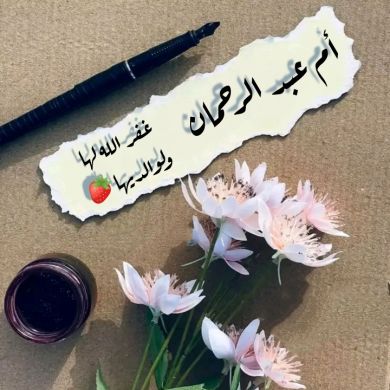 أم عبد الرحمان
غفر الله لها
ولوالديها🍓